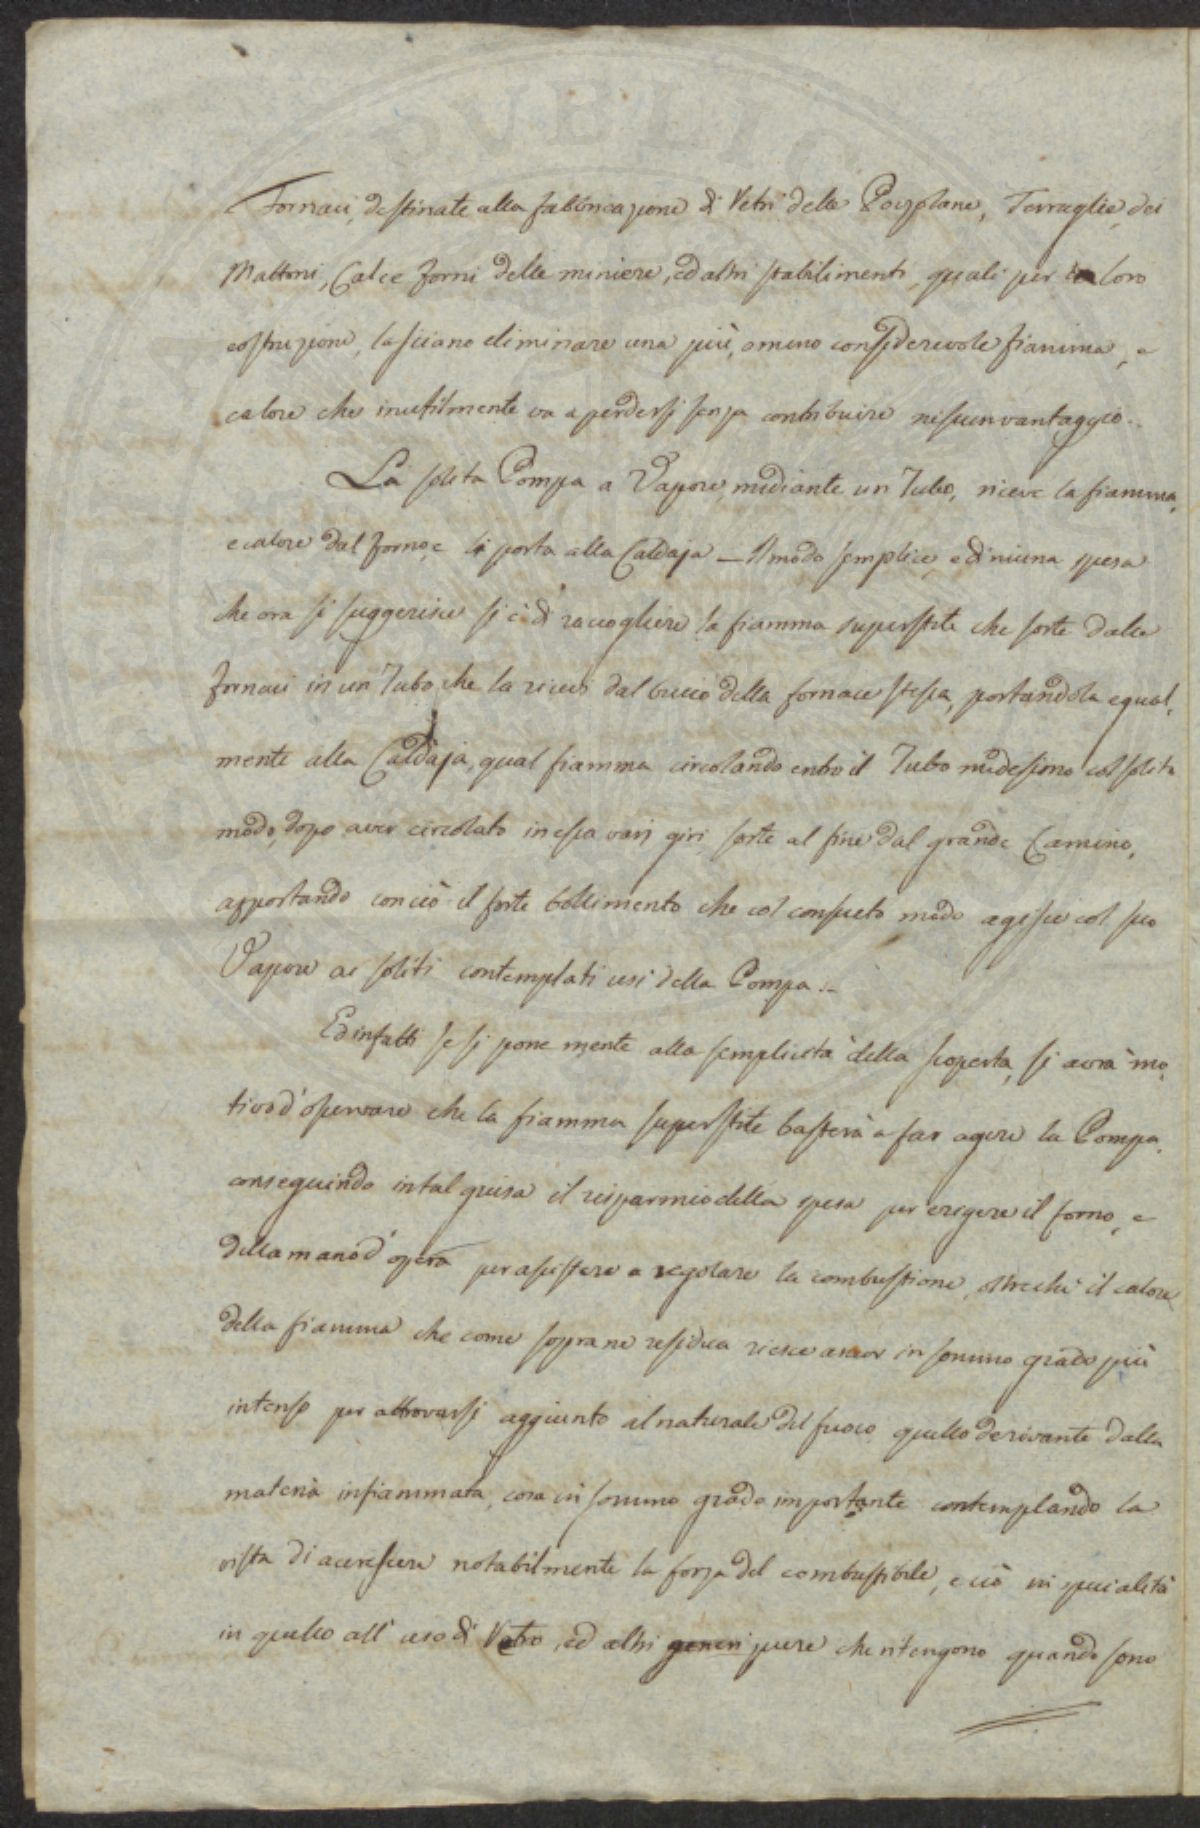 Fornaci, destinate alla fabbricazione di Vetri delle Porzolane, Terraglie, dei
Mattoni, Calce forni delle miniere, ed altri stabilimenti, quali per la loro
costruzione, lasciano eliminare una più, o meno considerevole fiamma, e
calore che inutilmente va a perdersi senza contribuire nissun vantaggio.
La solita Pompa a Vapore, mediante un Tubo, riceve la fiamma,
e calore dal forno, e li porta alla Caldaja — Il modo semplice, e di niuna spesa
che ora si suggerisce si è di raccogliere la fiamma superstite che sorte dalle
fornaci in un Tubo, che la ricevi dal bucco della fornace stessa, portandola equal,
mente alla Caldaja, qual fiamma circolando entro il Tubo medesimo col solito
modo, dopo aver circolato in essa varj giri, sorte al fine dal grande Camino,
apportando con ciò il forte bollimento che col consueto modo agisce col suo
Vapore ai soliti contemplati usi della Pompa.
Ed infatti se si pone mente alla semplicità della scoperta, si avrà mo,
tivo d'osservare che la fiamma superstite basterà a far agire la Pompa,
conseguindo in tal guisa il risparmio della spesa per erigere il forno, e
della mano d'opera per assistere a regolare la combustione, oltrechè il calore
della fiamma che come sopra ne residua riesce ancor in sommo grado più
intenso per attrovarsi aggiunto al naturale del fuoco, quello derivante dalla
materia infiammata, cosa in sommo grado importante contemplando la
vista di accrescere notabilmente la forza del combustibile, e ciò in specialità
in quello all'uso di Vetro, ed altri generi pure che ritengono quando sono
PUBLIC